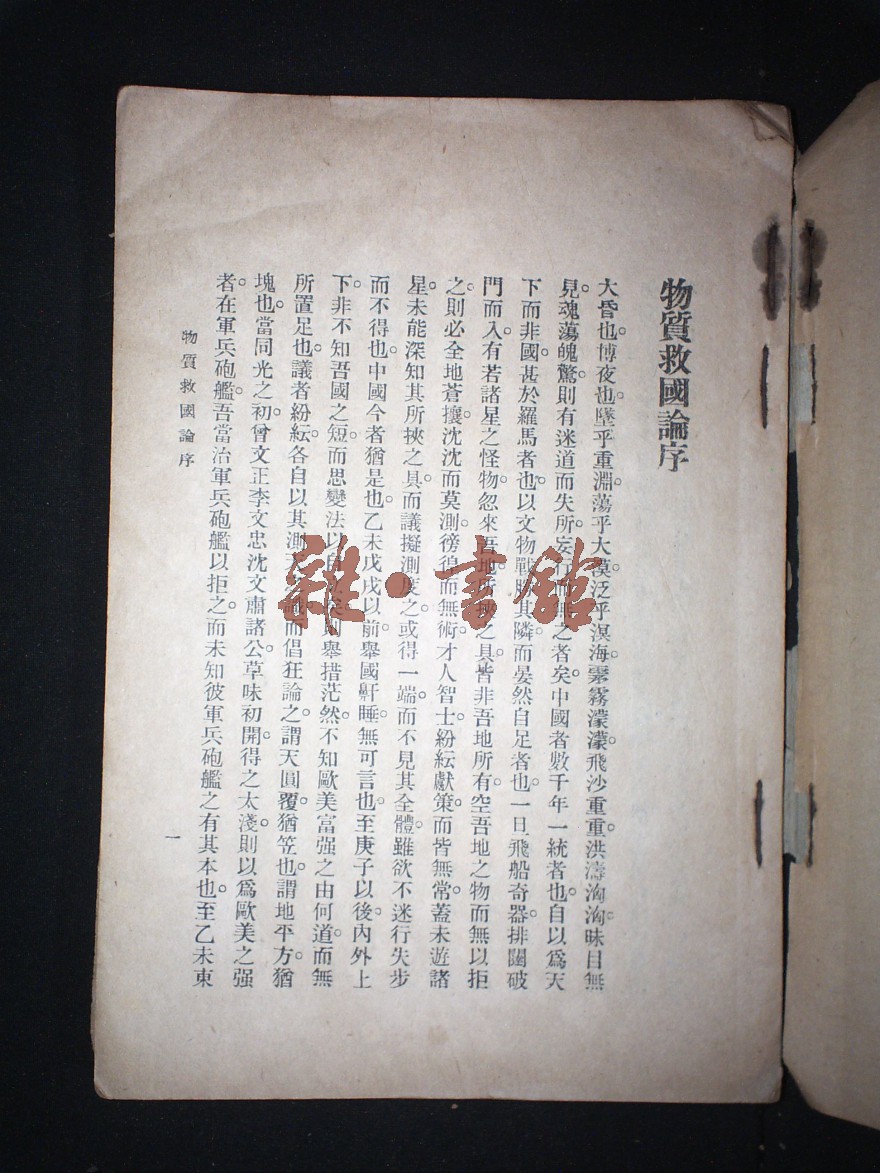 物質救國論序
大昏也。博夜也。墜乎重淵。蕩乎大漠。泛乎溟海。霧濛濛。飛沙重重。洪濤洶洶。昧目無
見。魂蕩魄驚。則有迷道而失所。妄行而之者矣。中國者。數千年一統者也。自以爲天
下而非國。甚於羅馬者也。以文物戰勝其隣。而晏然自足者也。一旦飛船奇器。排闥破
門而入。有若諸星之怪物。忽來吾地。所挾之具。皆非吾地所有。空吾地之物。而無以拒
之。則必全地蒼攘。沈沈而莫測。徬徨而無術。才人智士。紛紜獻策。而皆無常。蓋未遊諸
星。未能深知其所挾之具。而議擬測度之。或得一端。而不見其全體。雖欲不迷行失步
而不得也。中國今者猶是也。乙未戊戌以前。舉國鼾睡。無可言也。至庚子以後。內外上
下。非不知吾國之短。而思變法以自。舉措茫然。不知歐美富强之由何道。而無
所置足也。議者紛紜。各自以其測天之識。而倡狂論之。謂天圓覆猶笠也。謂地平方猶
塊也。當同光之初。曾文正李文忠沈文肅諸公。草昧初開。得之太淺。則以爲歐美之强
者。在軍兵砲艦。吾當治軍兵砲艦以拒之。而未知彼軍兵砲艦之有其本也。至乙未東
物質救國論序
一
雜·書館